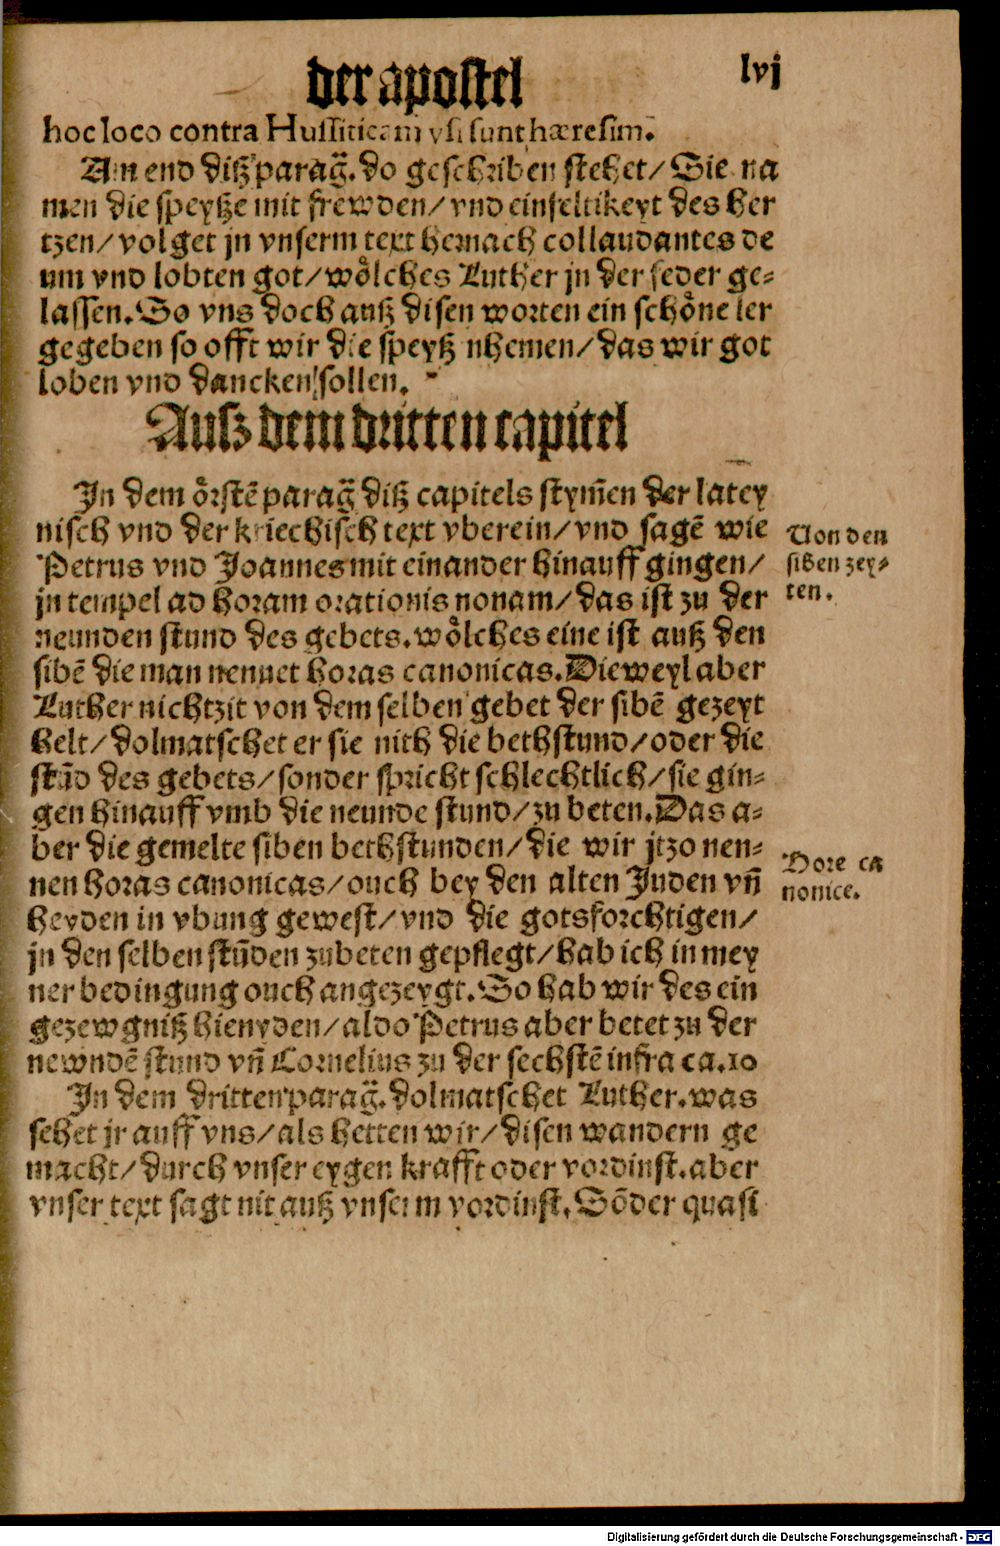 der apostel
lvj
hoc loco contra Hussiticam vsi sunt hæresim.
Am end diß parag̃. do geschriben stehet/ Sie na
men die speyße mit frewden/ vnd einfeltikeyt des her
tzen/ volget jn vnserm text hernach collaudantes de
um vnd lobten got/ wölches Luther jn der feder ge⸗
lassen. So vns doch auß disen worten ein schöne ler
gegeben so offt wir die speyß nhemen/ das wir got
loben vnd dancken sollen.
Auß dem dritten capitel
Jn dem örstẽ parag̃ diß capitels stym̃en der latey
nisch vnd der kriechisch text vberein/ vnd sagẽ wie
Petrus vnd Joannes mit einander hinauff gingen/
jn tempel ad horam orationis nonam/ das ist zu der
neunden stund des gebets. wölches eine ist auß den
sibẽ die man nennet horas canonicas. Dieweyl aber
Luther nichtzit von dem selben gebet der sibẽ gezeyt
helt/ dolmatschet er sie nith die bethstund/ oder die
stũd des gebets/ sonder spricht schlechtlich/ sie gin⸗
gen hinauff vmb die neunde stund/ zu beten. Das a⸗
ber die gemelte siben bethstunden/ die wir jtzo nen⸗
nen horas canonicas/ ouch bey den alten Juden vñ
heyden in vbung gewest/ vnd die gotsforchtigen/
jn den selben stũden zubeten gepflegt/ hab ich in mey
ner bedingung ouch angezeygt. So hab wir des ein
gezewgniß hienyden/ aldo Petrus aber betet zu der
newndẽ stund vñ Cornelius zu der sechstẽ infra ca. 10
Jn dem dritten parag̃. dolmatschet Luther. was
sehet jr auff vns/ als hetten wir/ disen wandern ge
macht/ durch vnser eygen krafft oder vordinst. aber
vnser text sagt nit auß vnserm vordinst. Sõder quasi
Von den
siben zey⸗
ten.
Hore ca
nonice.
Digitalisierung gefördert durch die Deutsche Forschungsgemeinschaft - DFG